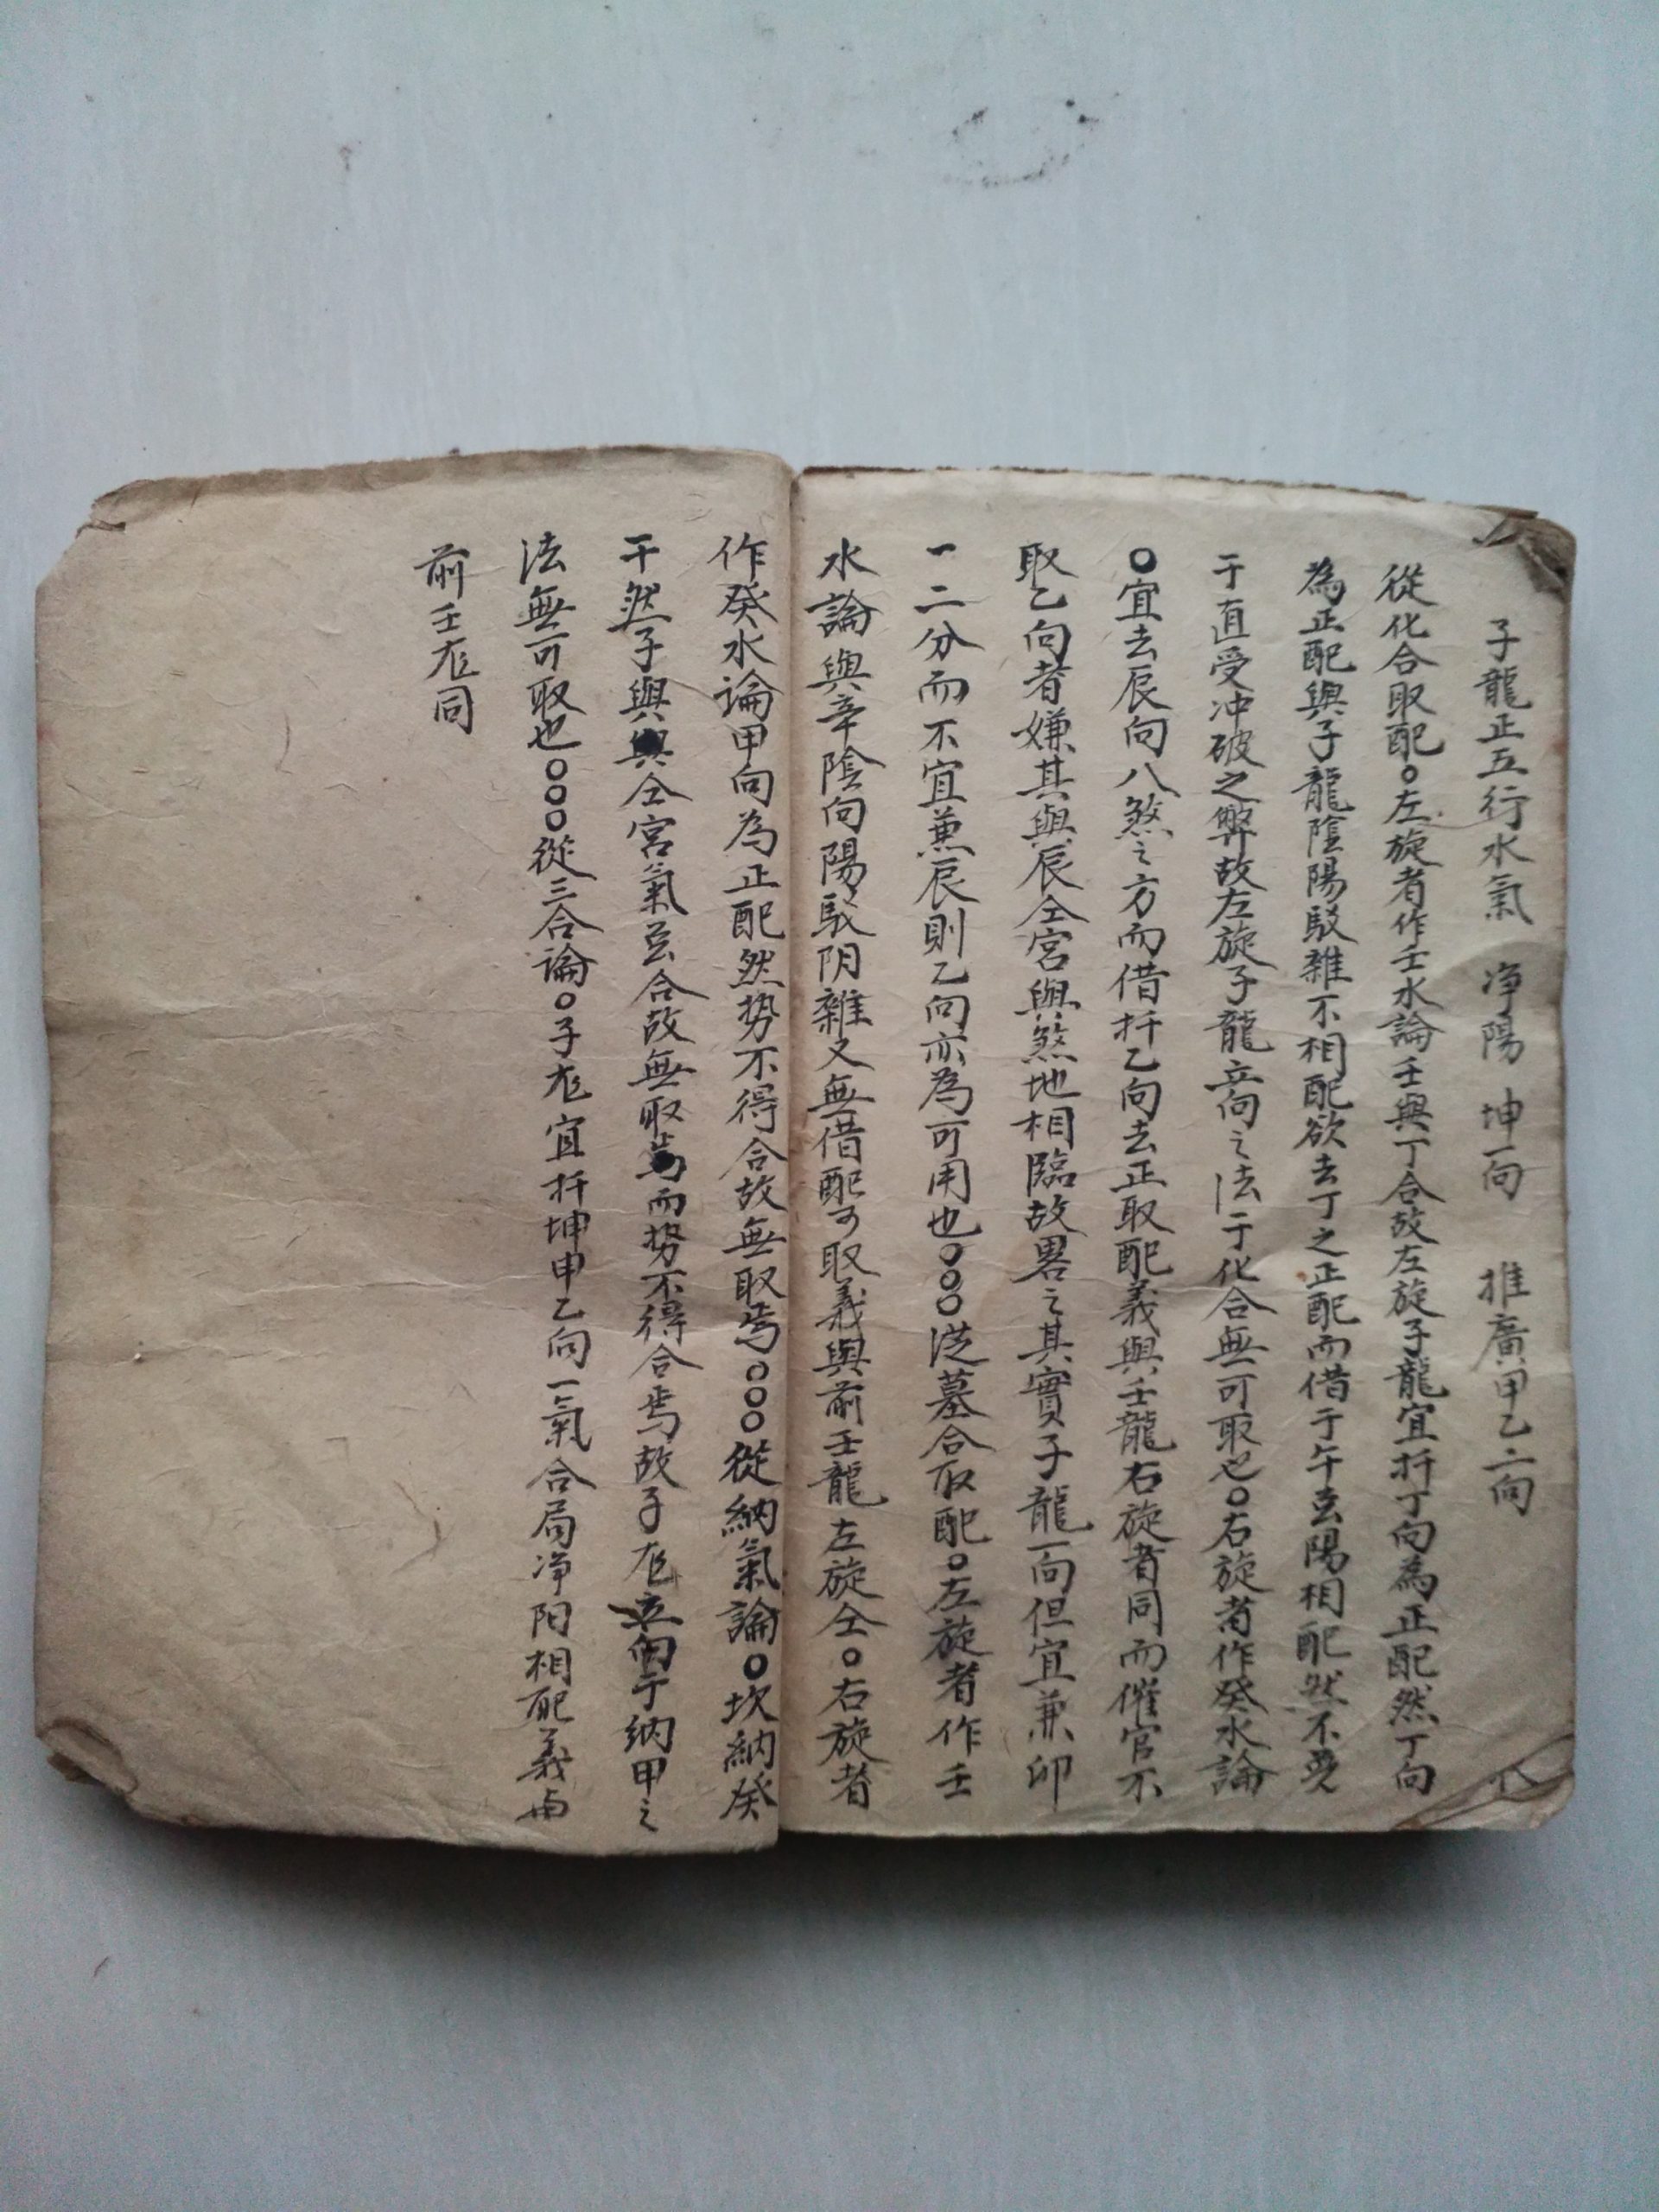 子龍正五行水氣　净陽　坤一向　推廣甲乙二向
從化合取配○左旋者作壬水論壬與丁合故左旋子龍宜扦丁向為正配然丁向
為正配與子龍陰陽駁雜不相配欲去丁之正配而借于午並陽相配然不免
于直受冲破之弊故左旋子龍立向之法于化合無可取也○右旋者作癸水論
○宜去辰向八煞之方而借扦乙向去正取配義與壬龍右旋者同而催官不
取乙向者嫌其與辰仝宮與煞地相臨故畧之其實子龍一向但宜兼卯
一二分而不宜兼辰則乙向亦為可用也○○○從墓合取配○左旋者作壬
水論與辛陰向陽駁阴雜又無借配可取義與前壬龍左旋仝○右旋者
作癸水論甲向為正配然势不得合故無取焉○○○從納氣論○坎納癸
干然子與仝宮氣並合故無取焉而势不得合焉故子龙立向于納甲之
法無可取也○○○從三合論○子龙宜扦坤申乙向一氣合局净阳相配義与
前壬龙同